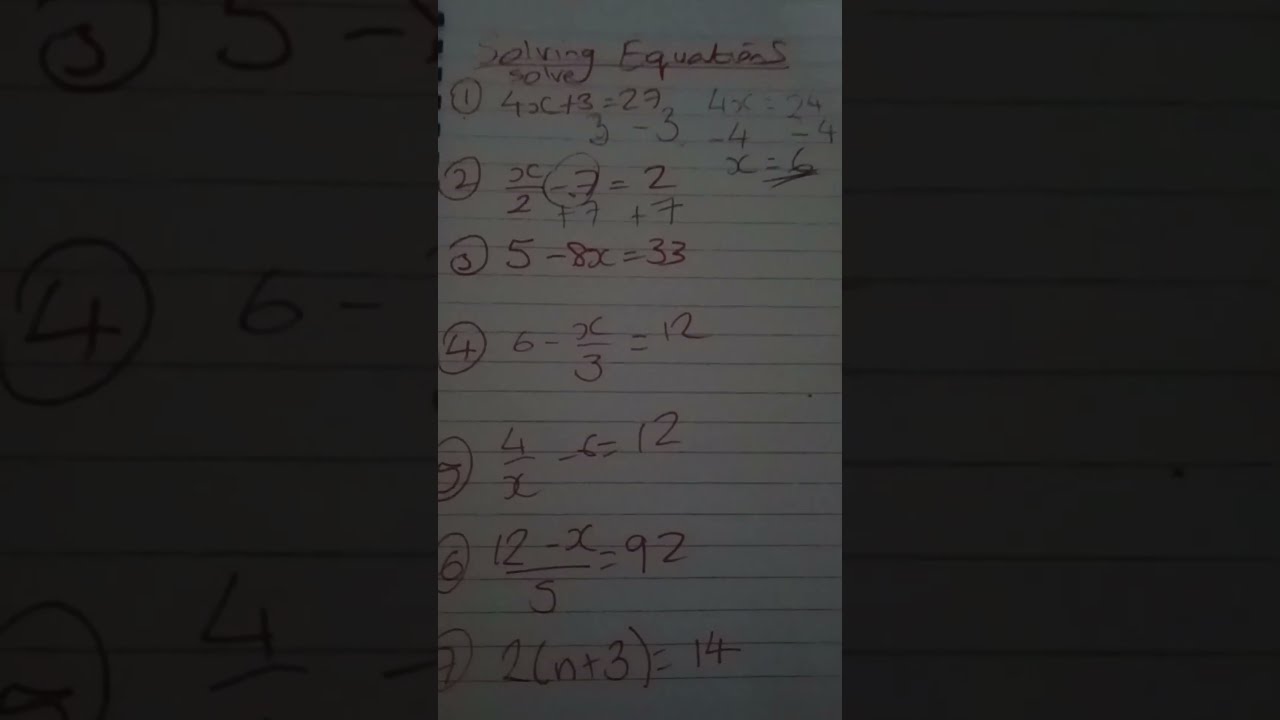 Solving Equations
solve
① 4x+3=27 4x=24
3 -3 -4 -4
x=6
② x/2 -7=2
+7 +7
③ 5-8x=33
④ 6-x/3=12
⑤ 4/x -6=12
⑥ 12-x/5=92
⑦ 2(n+3)=14